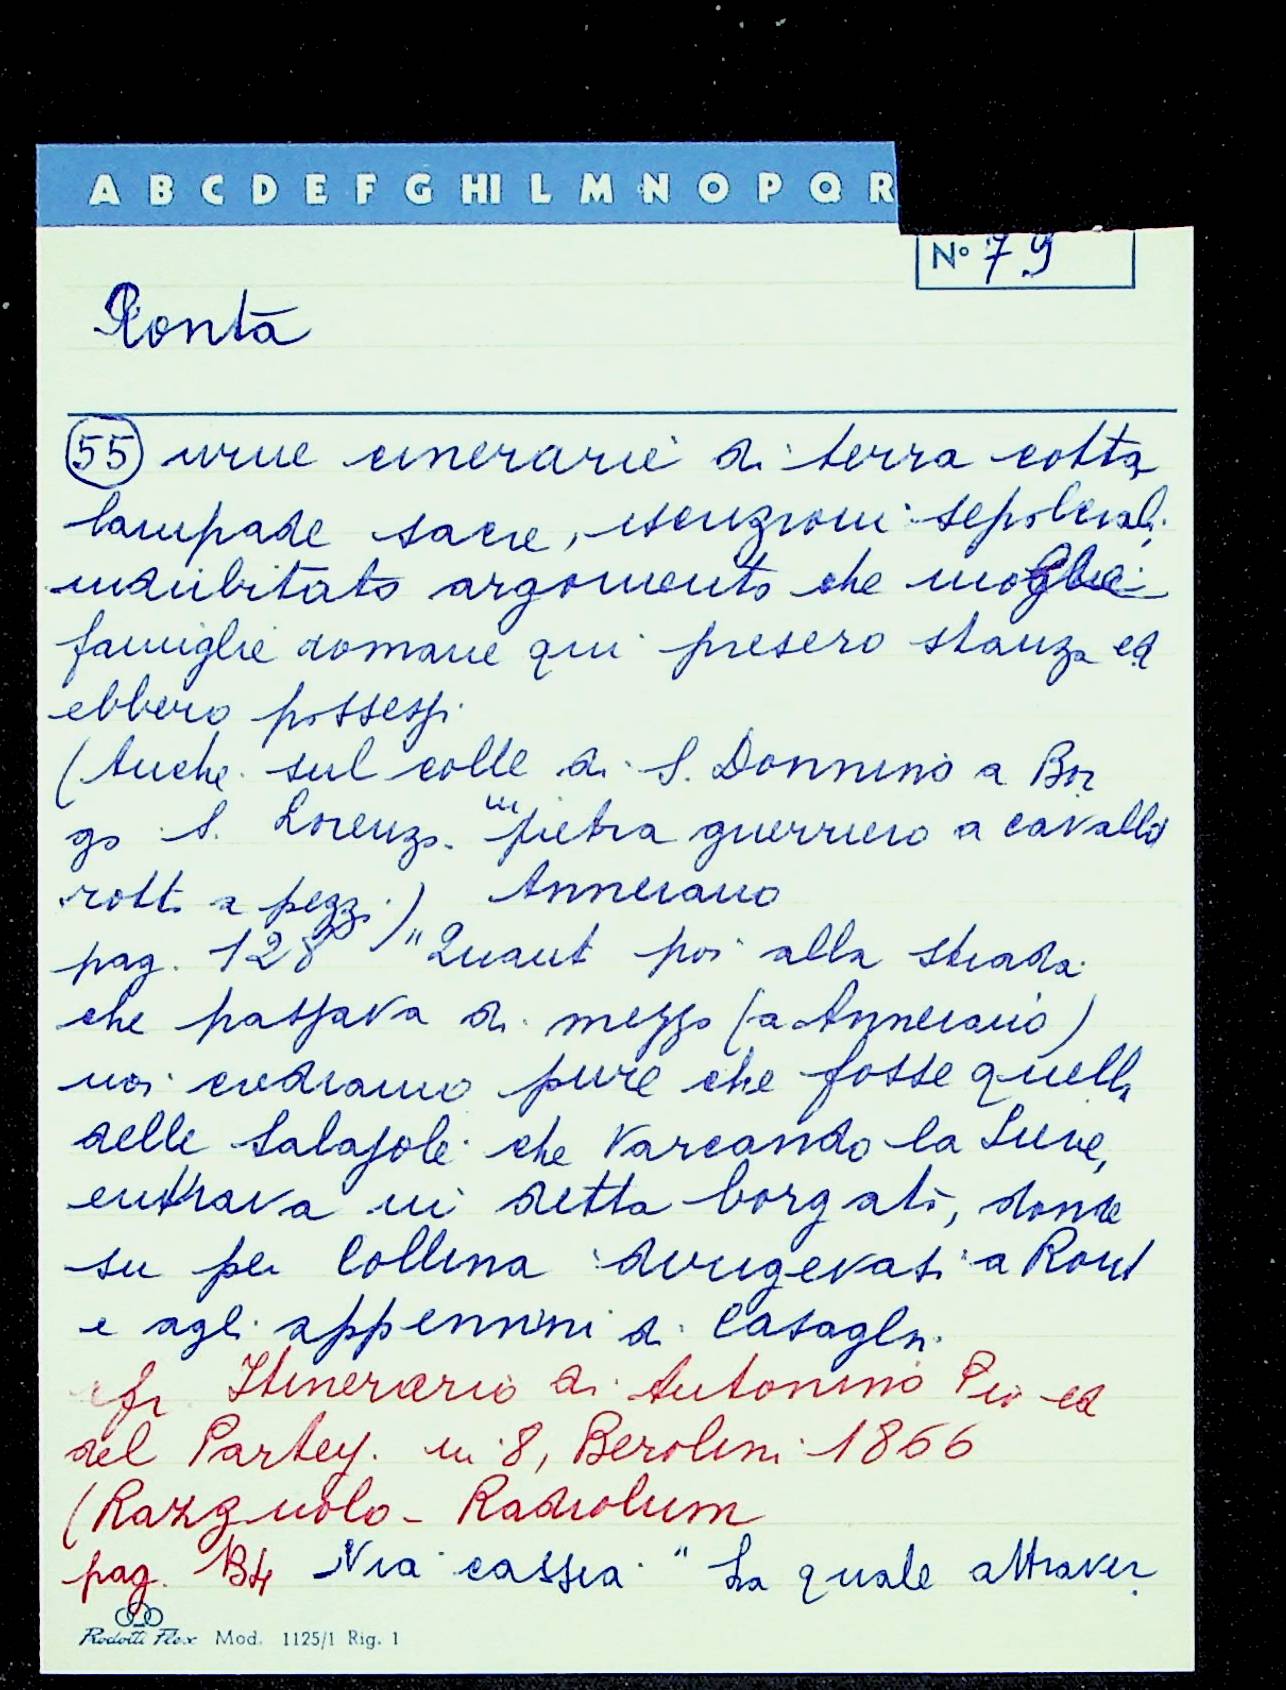 A B C D E F G HI L M N O P Q R
N° 79
Ronta
55 urne cinerarie di terra cotta
lampade sacre, iscrizioni sepolcrali,
indubitato argomento che
famiglie romane qui presero stanza ed
ebbero possessi
(Anche sul colle di S. Donnino a Bor
go S. Lorenzo. "in pietra guerriero a cavallo
rotto a pezzi.) Annerano
pag. 128 "Quanto poi alla strada
che passava di mezzo (a Annerano)
noi crediamo pure che fosse quella
delle Salajole che varcando la Sieve,
entrava in detta borgata, donde
su per collina dirigevasi a Ronta
e agli appennini di Casaglia.
cfr Itinerario di Antonino Pio ed
del Partey. in 8, Berolini 1866
(Razzuolo - Radiolum
pag. 134 Via cassia " La quale attraver
Rodotti Flex Mod. 1125/1 Rig. 1